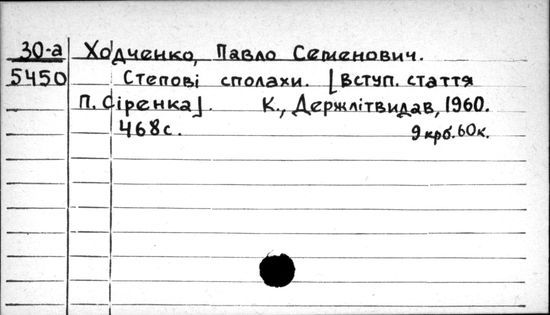 30-а Ходченко, Павло Семенович.
5450 Степові сполахи. [Вступ. стаття
П. Сіренка]. К., Держлітвидав, 1960.
468с. 9 крб. 60к.